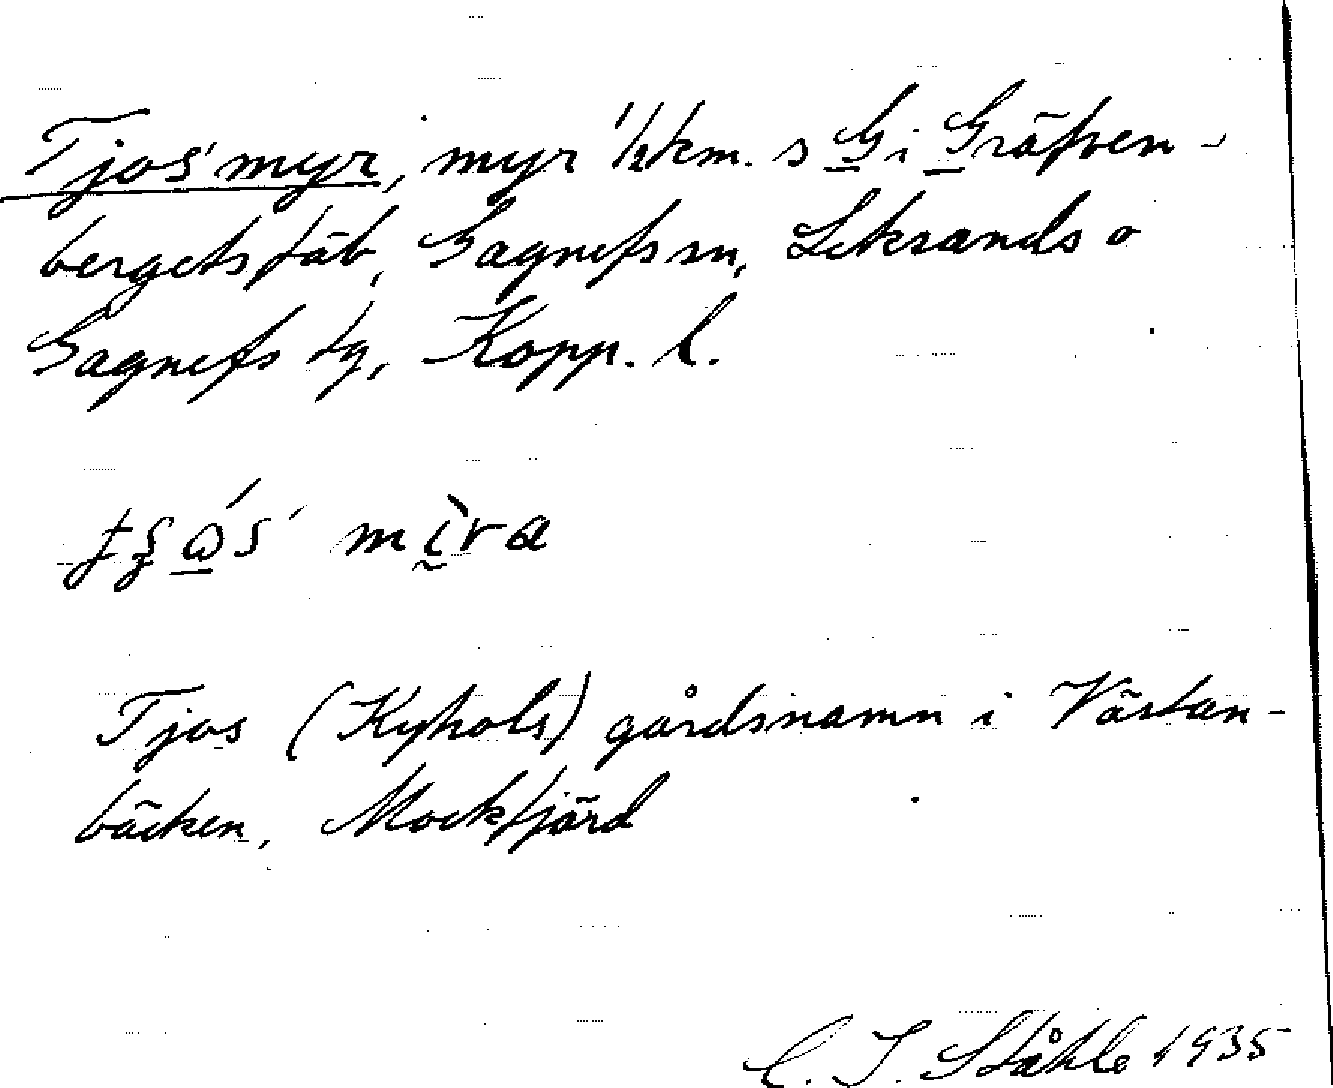 Tjos'myr, myr 1/2 km. s G i Gräfven-
bergets fäb, Gagnefs sn, Leksands o
Gagnefs tg, Kopp. l.
mì̱ra
Tjos (Kyhols) gårdsnamn i Västan-
bäcken, Mockfjärd
C. I. Ståhle 1935